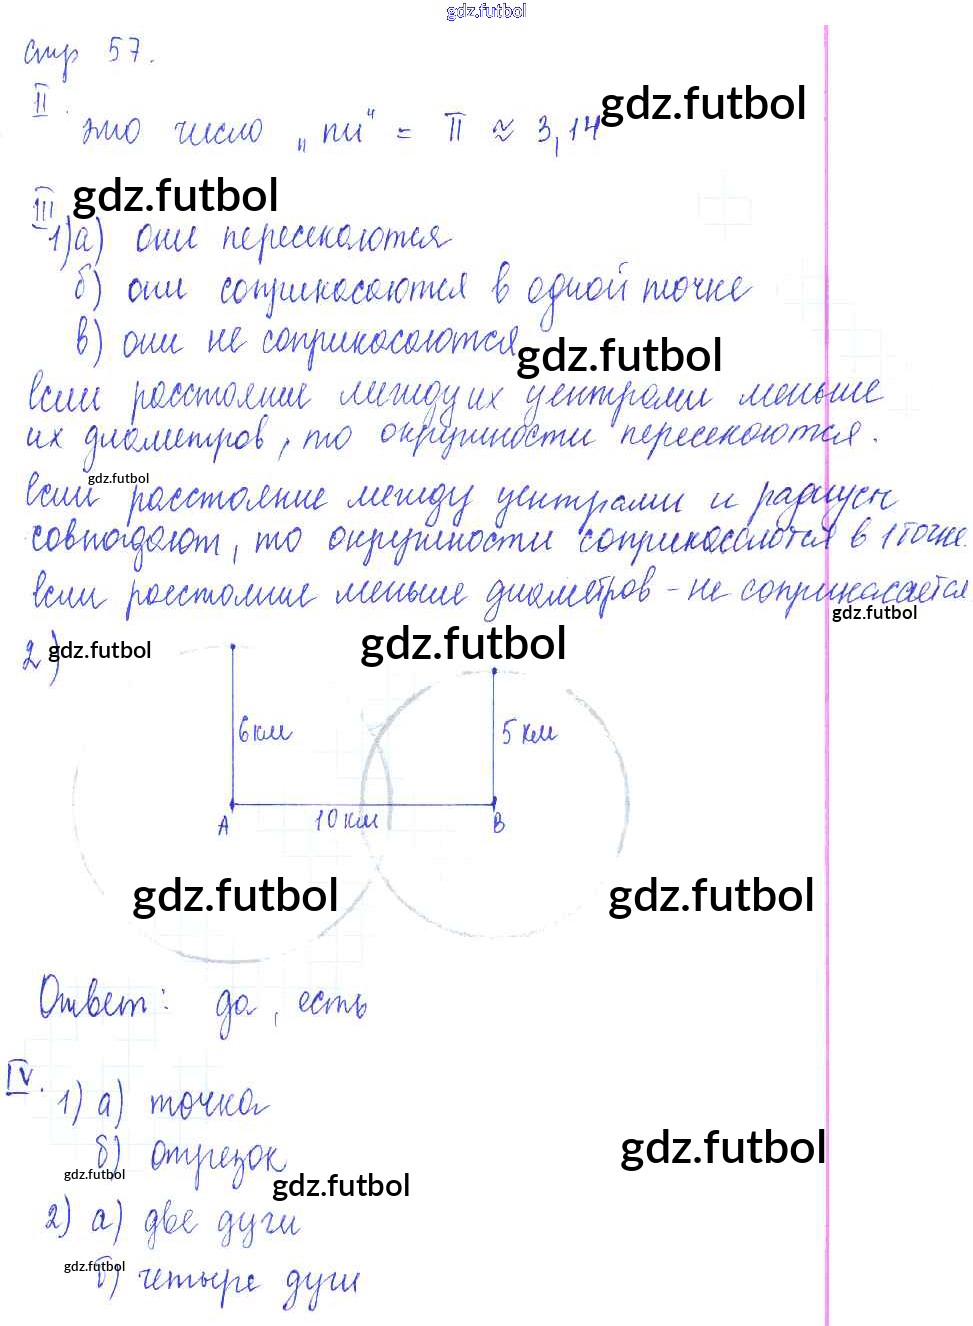 gdz.futbol
стр 57.
II.
это число „пи" = π ≈ 3,14
gdz.futbol
gdz.futbol
III
1) а) они пересекаются
б) они соприкасаются в одной точке
в) они не соприкасаются
gdz.futbol
Если расстояние между их центрами меньше
их диаметров, то окружности пересекаются.
gdz.futbol
Если расстояние между центрами и радиусы
совпадают, то окружности соприкасаются в 1 точке.
Если расстояние меньше диаметров - не соприкасается
gdz.futbol
2)
gdz.futbol
gdz.futbol
6 км
5 км
A
10 км
B
gdz.futbol
gdz.futbol
Ответ: да, есть
IV.
1) а) точка
б) отрезок
gdz.futbol
gdz.futbol
gdz.futbol
2) а) две дуги
gdz.futbol
б) четыре дуги